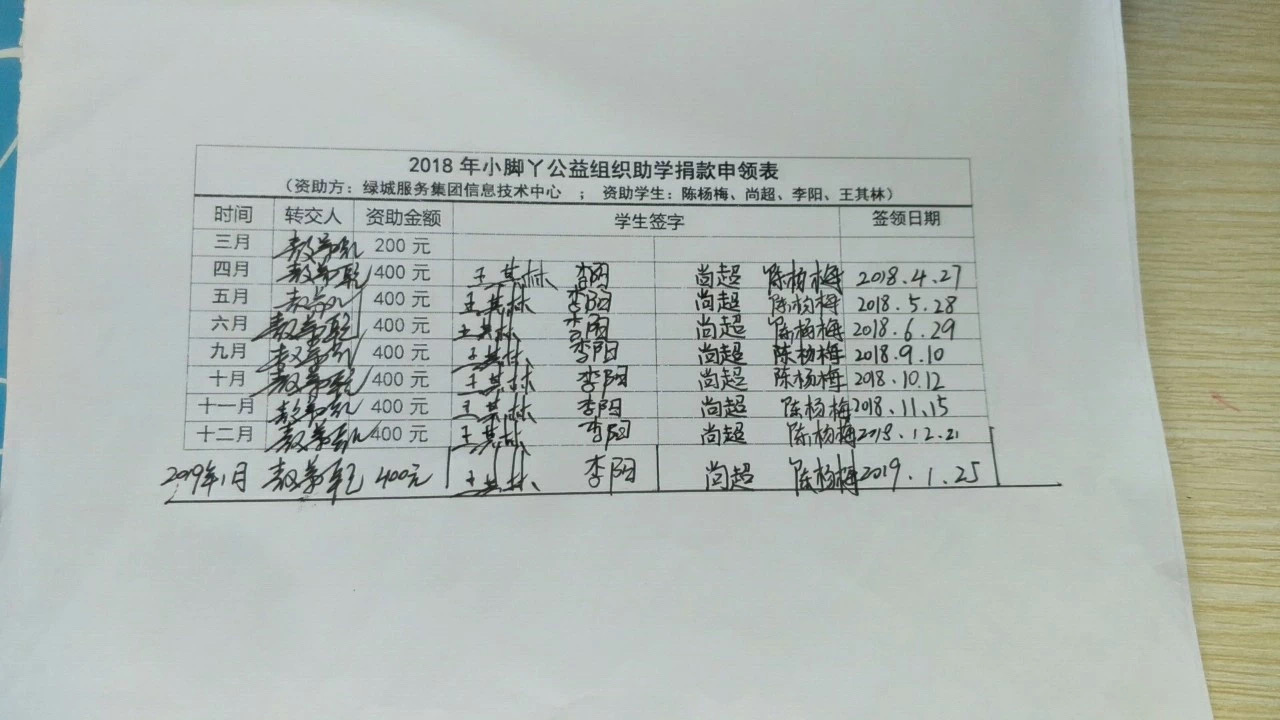 2018 年小脚丫公益组织助学捐款申领表
（资助方：绿城服务集团信息技术中心 ； 资助学生：陈杨梅、尚超、李阳、王其林）
时间 转交人 资助金额 学生签字 签领日期
三月 200 元
四月 400 元 王其林 李阳 尚超 陈杨梅 2018.4.27
五月 400 元 王其林 李阳 尚超 陈杨梅 2018.5.28
六月 400 元 王其林 李阳 尚超 陈杨梅 2018.6.29
九月 400 元 王其林 李阳 尚超 陈杨梅 2018.9.10
十月 400 元 王其林 李阳 尚超 陈杨梅 2018.10.12
十一月 400 元 王其林 李阳 尚超 陈杨梅 2018.11.15
十二月 400 元 王其林 李阳 尚超 陈杨梅 2018.12.21
2019年1月 400元 王其林 李阳 尚超 陈杨梅 2019.1.25